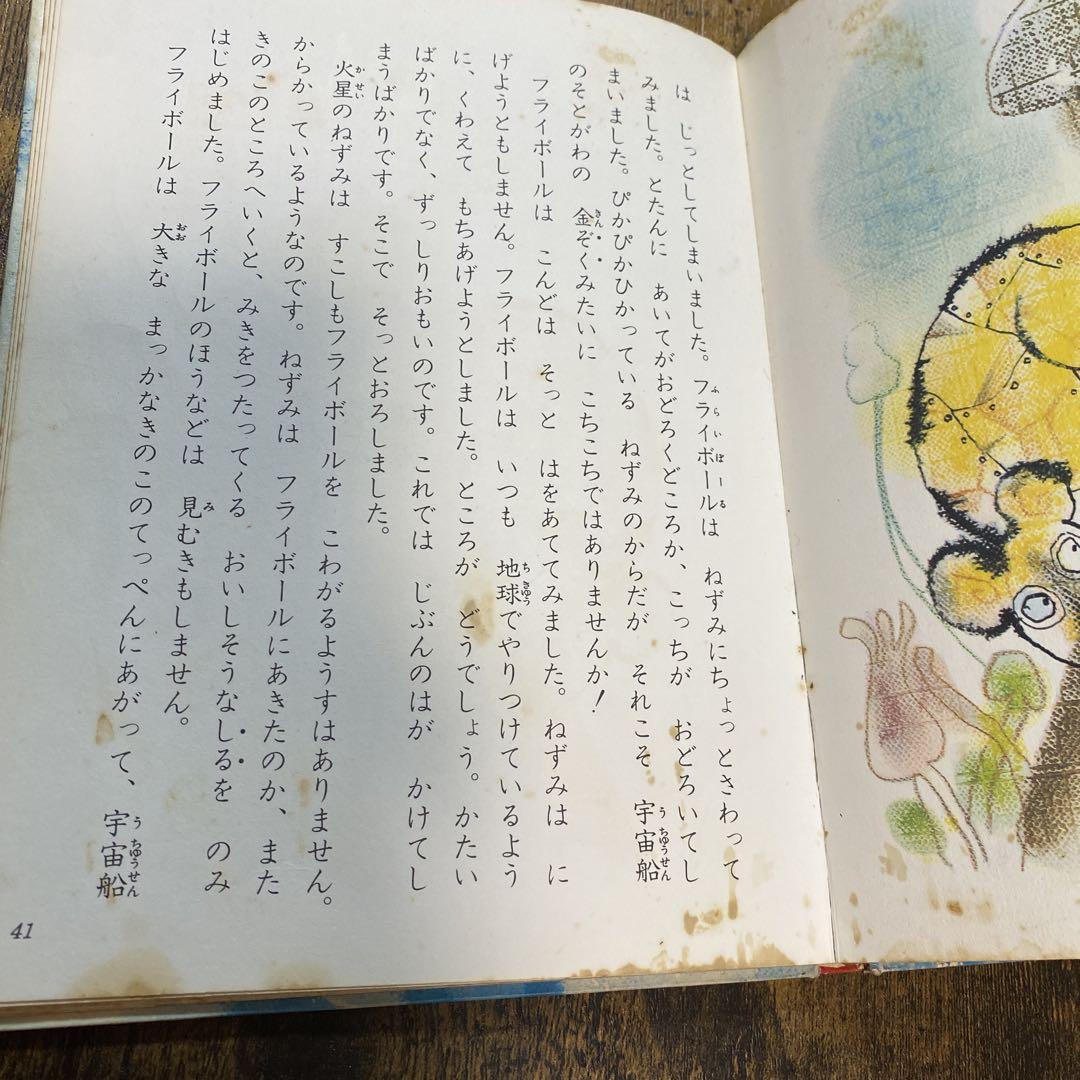 は　じっとしてしまいました。フライボールは　ねずみにちょっとさわって
みました。とたんに　あいてがおどろくどころか、こっちが　おどろいてし
まいました。ぴかぴかひかっている　ねずみのからだが　それこそ　宇宙船
のそとがわの　金ぞくみたいに　こちこちではありませんか！
フライボールは　こんどは　そっと　はをあててみました。ねずみは　に
げようともしません。フライボールは　いつも　地球でやりつけているよう
に、くわえて　もちあげようとしました。ところが　どうでしょう。かたい
ばかりでなく、ずっしりおもいのです。これでは　じぶんのはが　かけてし
まうばかりです。そこで　そっとおろしました。
火星のねずみは　すこしもフライボールを　こわがるようすはありません。
からかっているようなのです。ねずみは　フライボールにあきたのか、また
きのこのところへいくと、みきをつたってくる　おいしそうなしるを　のみ
はじめました。フライボールのほうなどは　見むきもしません。
フライボールは　大きな　まっかなきのこのてっぺんにあがって、宇宙船
41